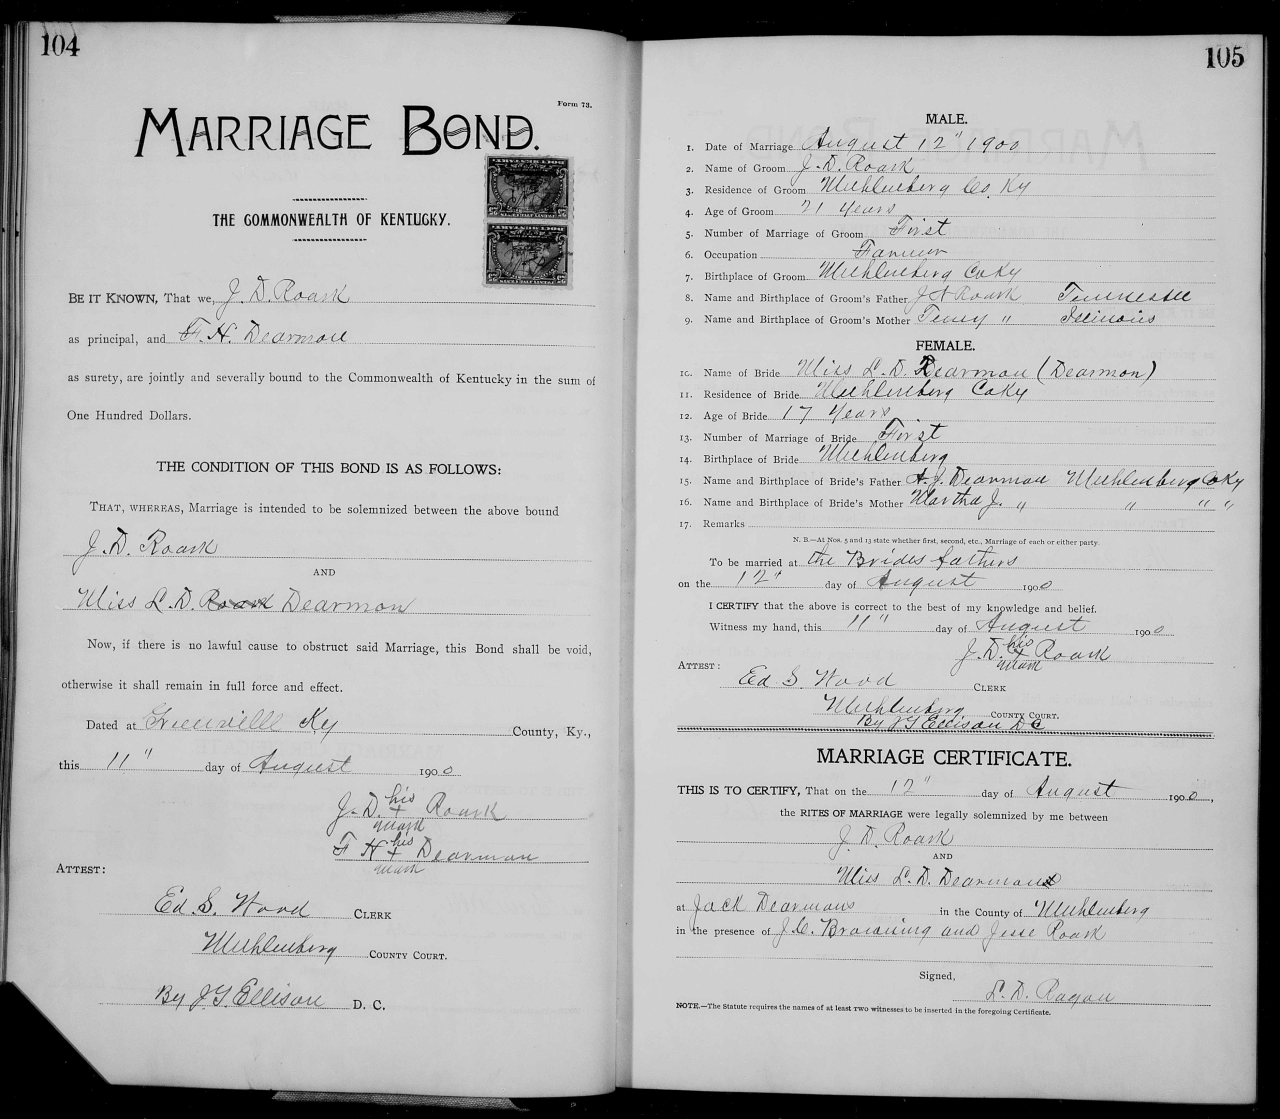 104
Form 73.
MARRIAGE BOND.
THE COMMONWEALTH OF KENTUCKY.
BE IT KNOWN, That we, J. D. Roark
as principal, and F. H. Dearmon
as surety, are jointly and severally bound to the Commonwealth of Kentucky in the sum of
One Hundred Dollars.
THE CONDITION OF THIS BOND IS AS FOLLOWS:
THAT, WHEREAS, Marriage is intended to be solemnized between the above bound
J. D. Roark
AND
Miss L. D. Roark Dearmon
Now, if there is no lawful cause to obstruct said Marriage, this Bond shall be void,
otherwise it shall remain in full force and effect.
Dated at Greenville Ky County, Ky.,
this 11" day of August 1900
J. D. his + mark Roark
F H his + mark Dearmon
ATTEST:
Ed S. Wood CLERK
Muhlenberg COUNTY COURT.
By J. G. Ellison D. C.
105
MALE.
1. Date of Marriage August 12" 1900
2. Name of Groom J. D. Roark
3. Residence of Groom Muhlenberg Co. Ky
4. Age of Groom 21 Years
5. Number of Marriage of Groom First
6. Occupation Farmer
7. Birthplace of Groom Muhlenberg Co Ky
8. Name and Birthplace of Groom's Father Roark Tennessee
9. Name and Birthplace of Groom's Mother " Illinois
FEMALE.
10. Name of Bride Miss L. D. Dearmon (Dearmon)
11. Residence of Bride Muhlenberg Co Ky
12. Age of Bride 17 Years
13. Number of Marriage of Bride First
14. Birthplace of Bride Muhlenberg
15. Name and Birthplace of Bride's Father A. J. Dearmon Muhlenberg Co Ky
16. Name and Birthplace of Bride's Mother Martha J. " " " "
17. Remarks
N. B.—At Nos. 5 and 13 state whether first, second, etc., Marriage of each or either party.
To be married at the Brides fathers
on the 12" day of August 1900
I CERTIFY that the above is correct to the best of my knowledge and belief.
Witness my hand, this 11" day of August 1900
J. D. his + mark Roark
ATTEST:
Ed S. Wood CLERK
Muhlenberg COUNTY COURT.
By J G Ellison D C
MARRIAGE CERTIFICATE.
THIS IS TO CERTIFY, That on the 12" day of August 1900,
the RITES OF MARRIAGE were legally solemnized by me between
J. D. Roark
AND
Miss L. D. Dearmon
at Jack Dearmons in the County of Muhlenberg
in the presence of J. C. Browning and Jesse Roark
Signed,
L. D. Ragan
NOTE.—The Statute requires the names of at least TWO witnesses to be inserted in the foregoing Certificate.